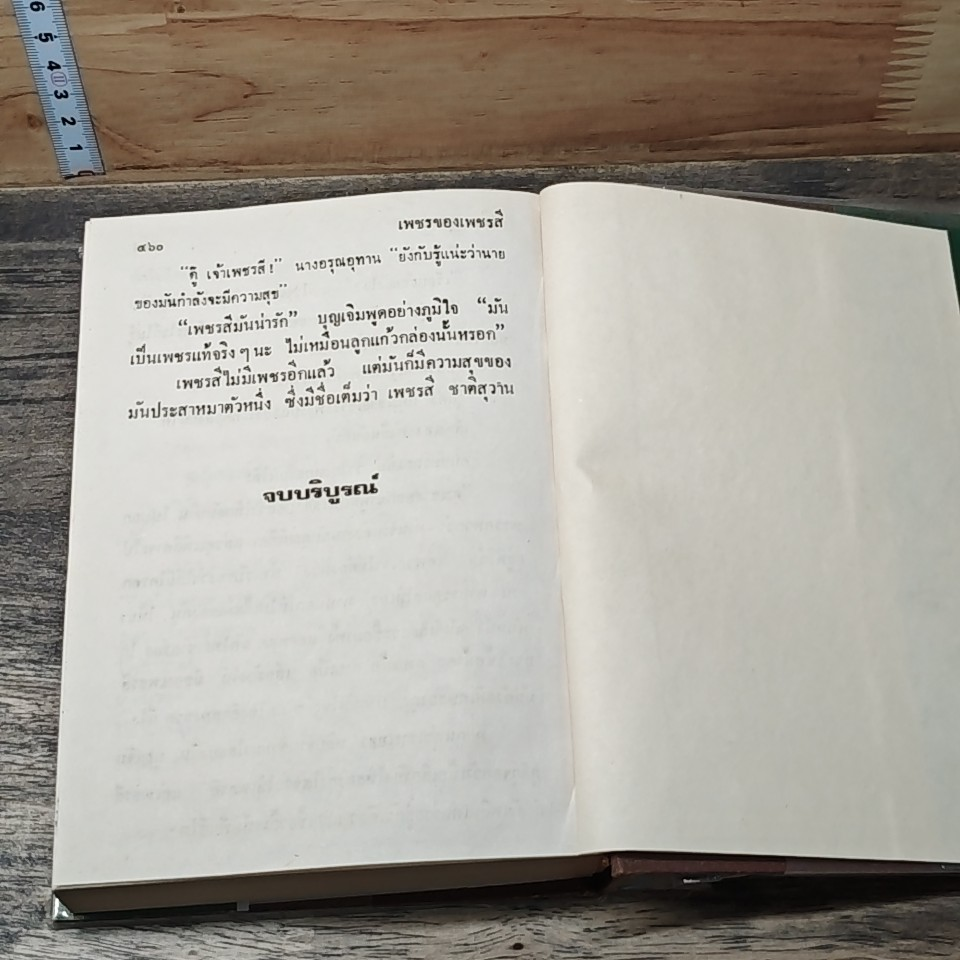 6
5
4
3
2
1
๔๖๐
เพชรของเพชรสี
"ดู๊ เจ้าเพชรสี!" นางอรุณอุทาน "ยังกับรู้แน่ะว่านาย
ของมันกำลังจะมีความสุข"
"เพชรสีมันน่ารัก" บุญเจิมพูดอย่างภูมิใจ "มัน
เป็นเพชรแท้จริง ๆ นะ ไม่เหมือนลูกแก้วกล่องนั้นหรอก"
เพชรสีไม่มีเพชรอีกแล้ว แต่มันก็มีความสุขของ
มันประสาหมาตัวหนึ่ง ซึ่งมีชื่อเต็มว่า เพชรสี ชาติสุวาน
จบบริบูรณ์